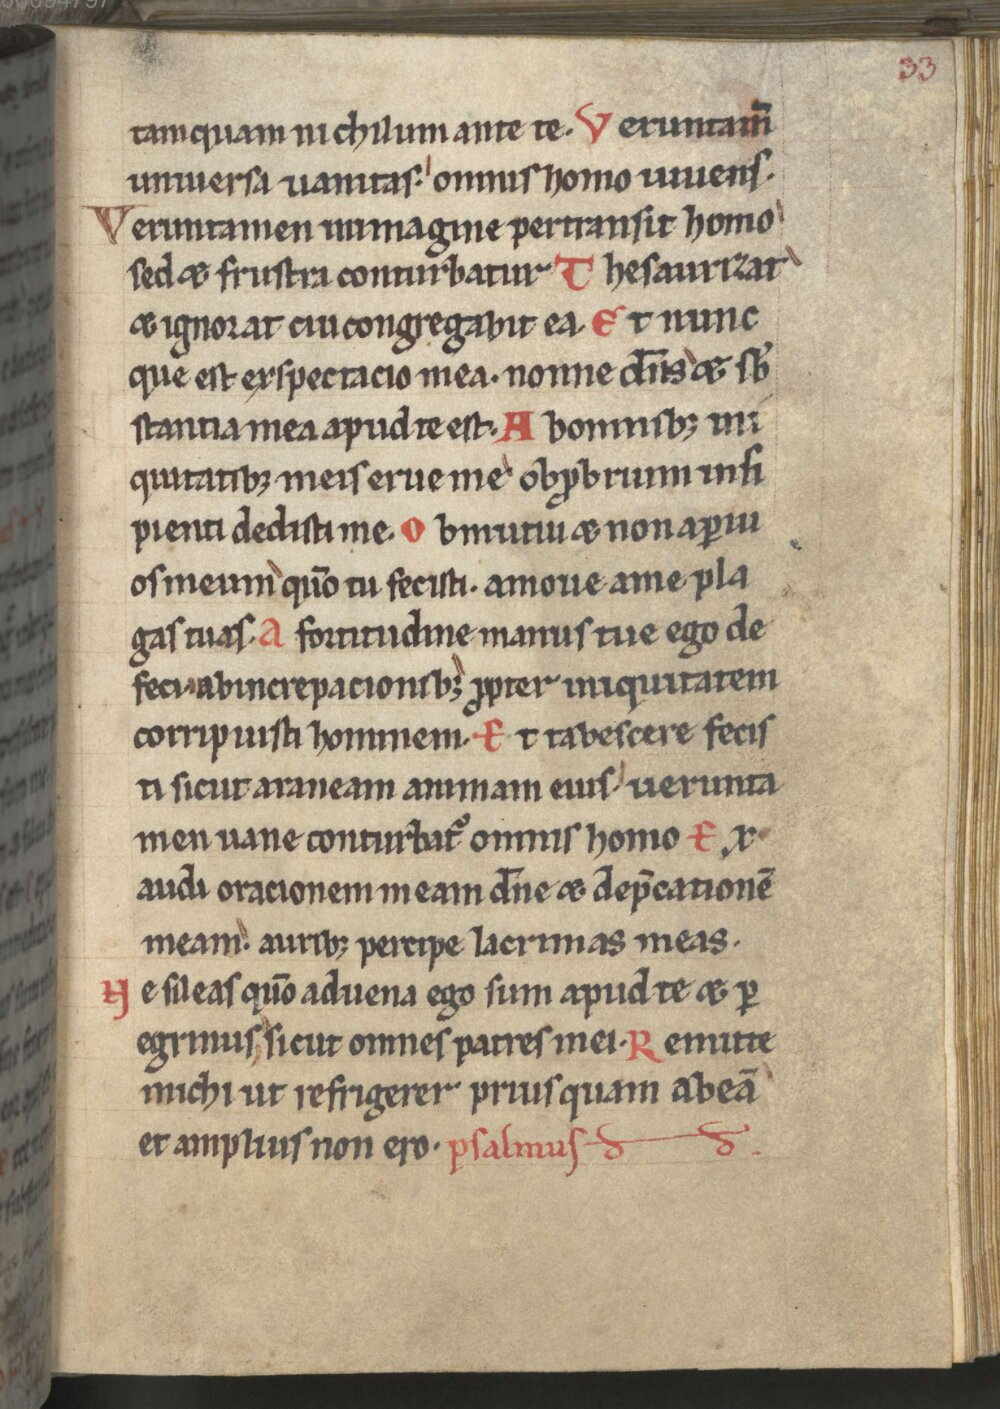 33
tamquam nichilum ante te. Veruntam̄
uniuersa uanitas. omnis homo uiuens.
Veruntamen inimagine pertransit homo
sed æ frustra conturbatur Thesaurizat
æ ignorat cui congregabit ea. Et nunc
que est exspectacio mea. nonne dn̄s æ sb̄
stantia mea apud te est. Ab omnibꝫ ini
quitatibꝫ meis erue me obꝓbrium insi
pienti dedisti me. Obmutui æ non aꝑui
os meum quō tu fecisti. amoue ame pla
gas tuas. A fortitudine manus tue ego de
feci abincrepacionibꝫ ꝓpter iniquitatem
corripuisti hominem. Et tabescere fecis
ti sicut araneam animam eius uerunta
men uane conturbat᷒ omnis homo Ex
audi oracionem meam dn̄e æ dep̄cationē
meam. auribꝫ percipe lacrimas meas.
Ne sileas quō aduena ego sum apud te æ ꝑ
egrinus sicut omnes patres mei. Remitte
michi ut refrigerer priusquam abeā
et amplius non ero. psalmus d d.